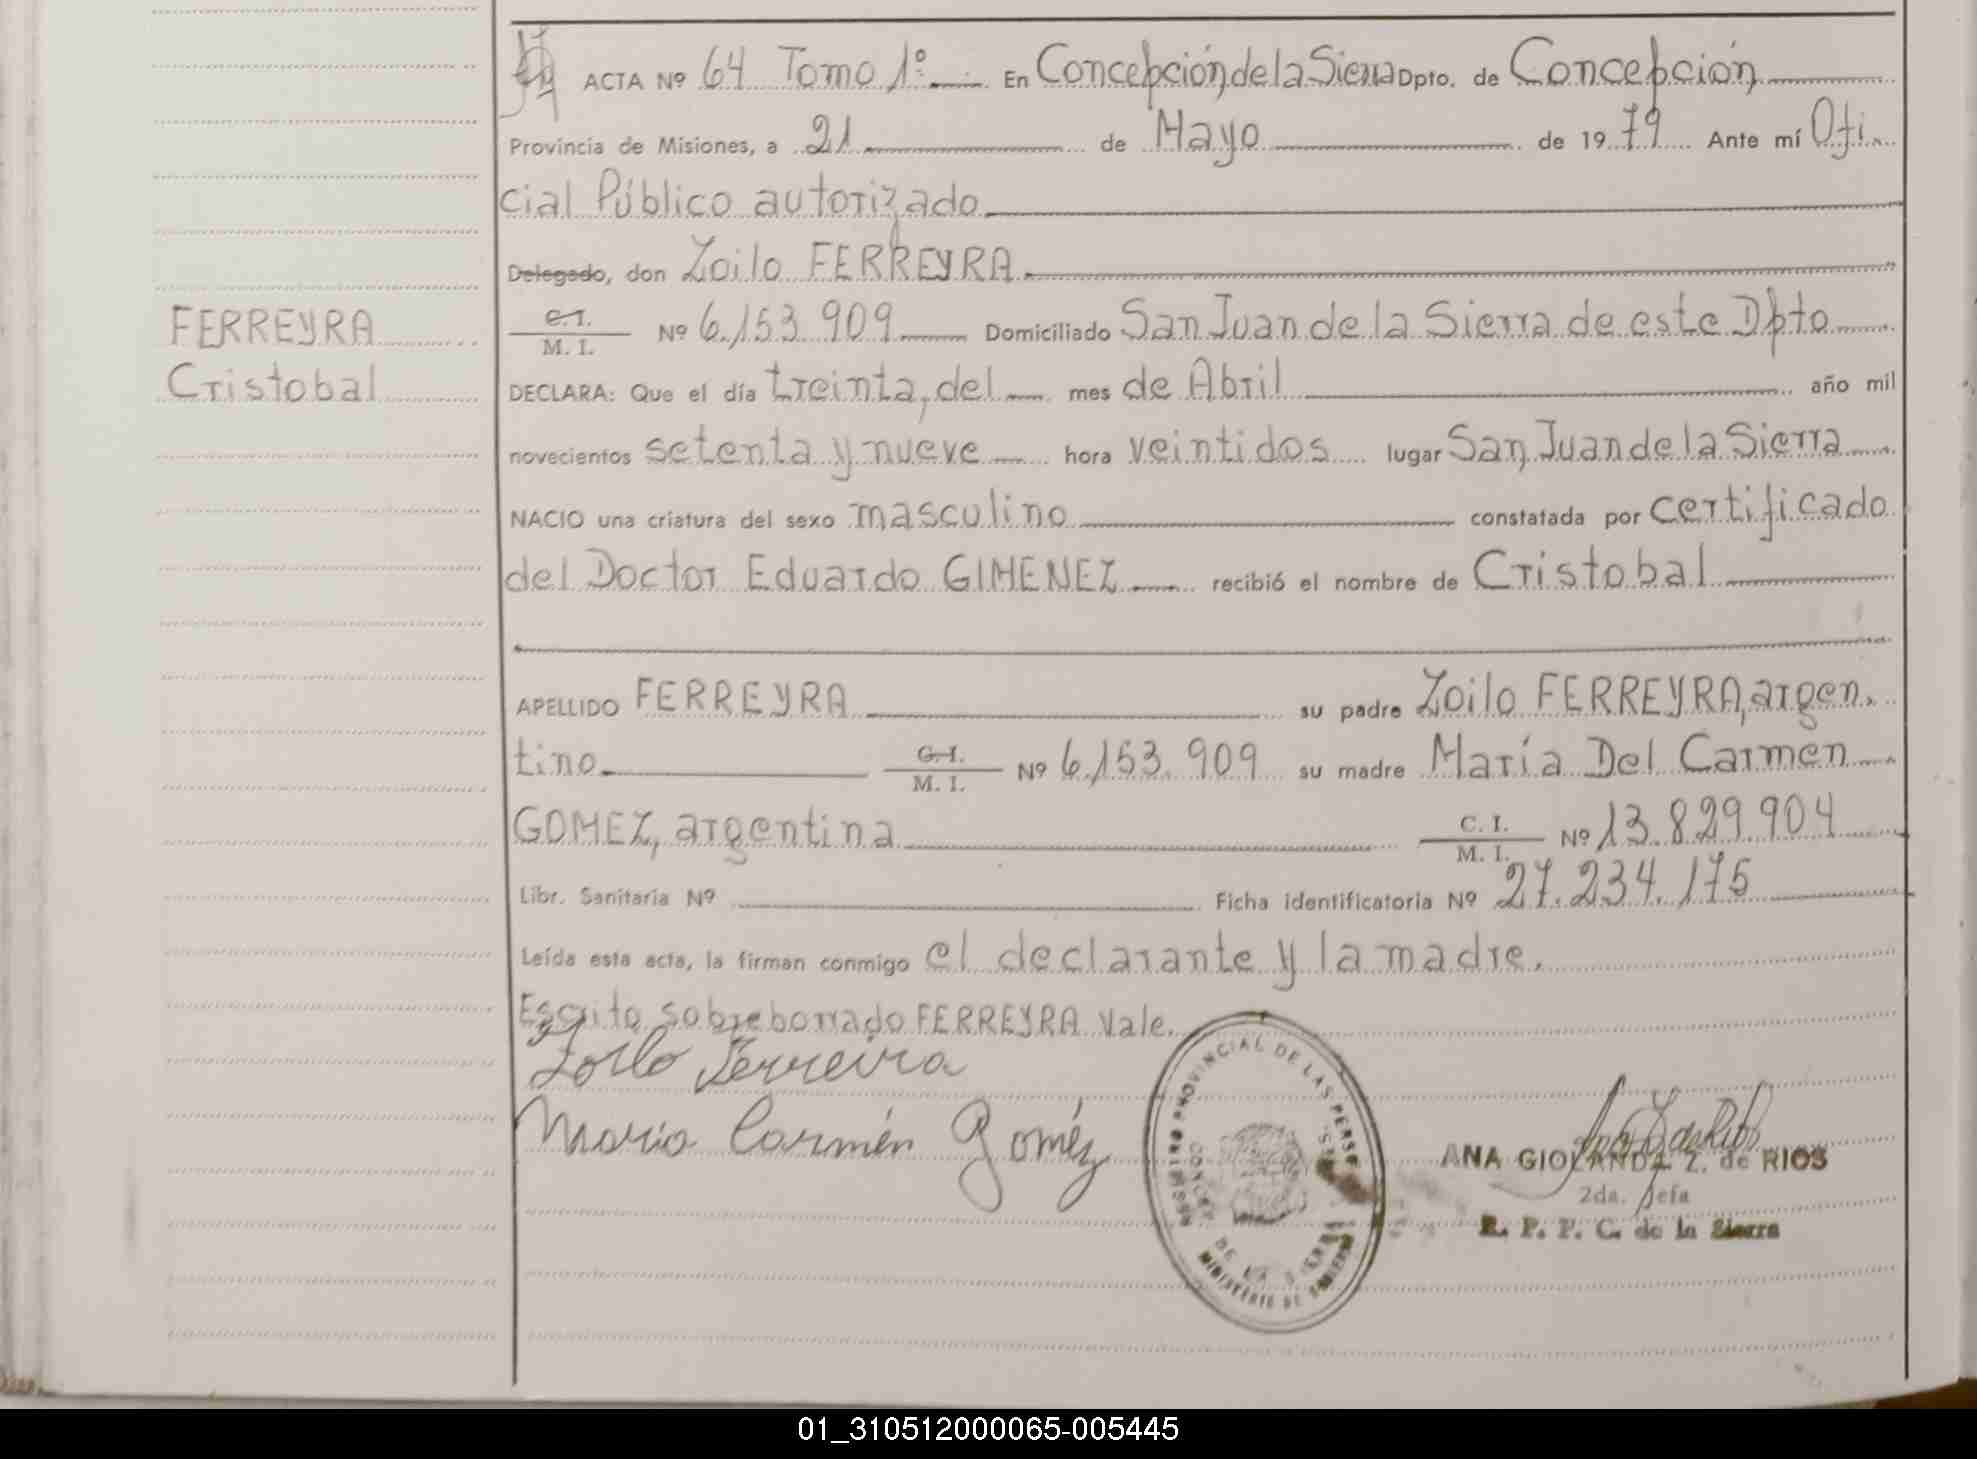 ACTA Nº 64 Tomo 1º En Concepción de la Sierra Dpto. de Concepción
Provincia de Misiones, a 21 de Mayo de 1979 Ante mí Ofi-
cial Público autorizado
Delegado, don Zoilo FERREYRA
FERREYRA
Cristobal
C.I.
M. I. Nº 6.153.909 Domiciliado San Juan de la Sierra de este Dpto
DECLARA: Que el día treinta, del mes de Abril año mil
novecientos setenta y nueve hora veintidos lugar San Juan de la Sierra
NACIO una criatura del sexo masculino constatada por certificado
del Doctor Eduardo GIMENEZ recibió el nombre de Cristobal
APELLIDO FERREYRA su padre Zoilo FERREYRA, argen-
tino C.I.
M. I. Nº 6.153.909 su madre María Del Carmen
GOMEZ, argentina C. I.
M. I. Nº 13.829.904
Libr. Sanitaria Nº Ficha identificatoria Nº 27.234.175
Leída esta acta, la firman conmigo el declarante y la madre.
Escrito sobreborrado FERREYRA Vale.
Zoilo Ferreira
Maria Carmén Goméz
REGISTRO PROVINCIAL DE LAS PERSONAS
MINISTERIO DE GOBIERNO
ANA GIOLANDA Z. de RIOS
2da. Jefa
R. P. P. C. de la Sierra
01_310512000065-005445